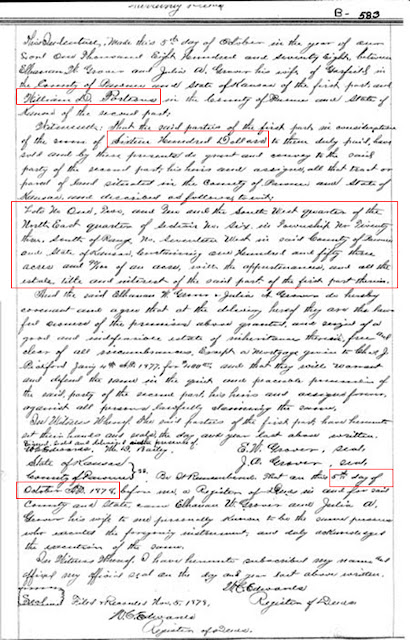 Warranty Deed
B - 583
This Indenture, Made this 5th day of October in the year of our
Lord One Thousand Eight Hundred and Seventy Eight, between
Ethanan W. Grover and Julia A. Grover his wife of Garfield in
the County of Pawnee and State of Kansas of the first part and
William D. in the County of Pawnee and State of
Kansas of the second part;
Witnesseth; That the said parties of the first part, in consideration
of the sum of Sixteen Hundred Dollars to them duly paid, have
sold and by these presents do grant and convey to the said
party of the second part, his heirs and assigns, all that tract or
parcel of land situated in the County of Pawnee and State of
Kansas, and described as follows to wit;
Lots No One, Two, and and the South West quarter of the
North East quarter of Section No. Six, in Township No Twenty
three, South of Range No. Seventeen West in said County of Pawnee
and State of Kansas, Containing one Hundred and fifty three
acres and of an acre, with the appurtenances, and all the
estate, title and interest of the said party of the first part therein.
And the said Ethanan W. Grover, Julia A. Grover do hereby
covenant and agree that at the delivery hereof they are the law-
ful owners of the premises above granted, and seized of a
good and indefeasible estate of inheritance therein, free and
clear of all incumbrances, Except a mortgage given to J.
and that they will warrant
and defend the same in the quiet and peaceable possession of
the said party of the second part, his heirs and assigns forever,
against all persons lawfully claiming the same.
In Witness Whereof The said parties of the first part have hereunto
set their hands and seals the day and year last above written.
Signed sealed and delivered in the presence of
W.C. Edwards, E.W. Grover, seal,
State of Kansas J.A. Grover, seal,
County of Pawnee } ss. Be It Remembered That on this 5th day of
October AD. 1878, before me, a Register of Deeds in and for said
County and State, came Ethanan W. Grover and Julia A.
Grover his wife to me personally known to be the same persons
who executed the foregoing instrument, and duly acknowledged
the execution of the same.
In Witness Whereof, I have hereunto subscribed my name and
affixed my official seal on the day and year last above written.
W.C. Edwards
Register of Deeds
Filed & Recorded Nov. 5, 1878,
W.C. Edwards
Register of Deeds